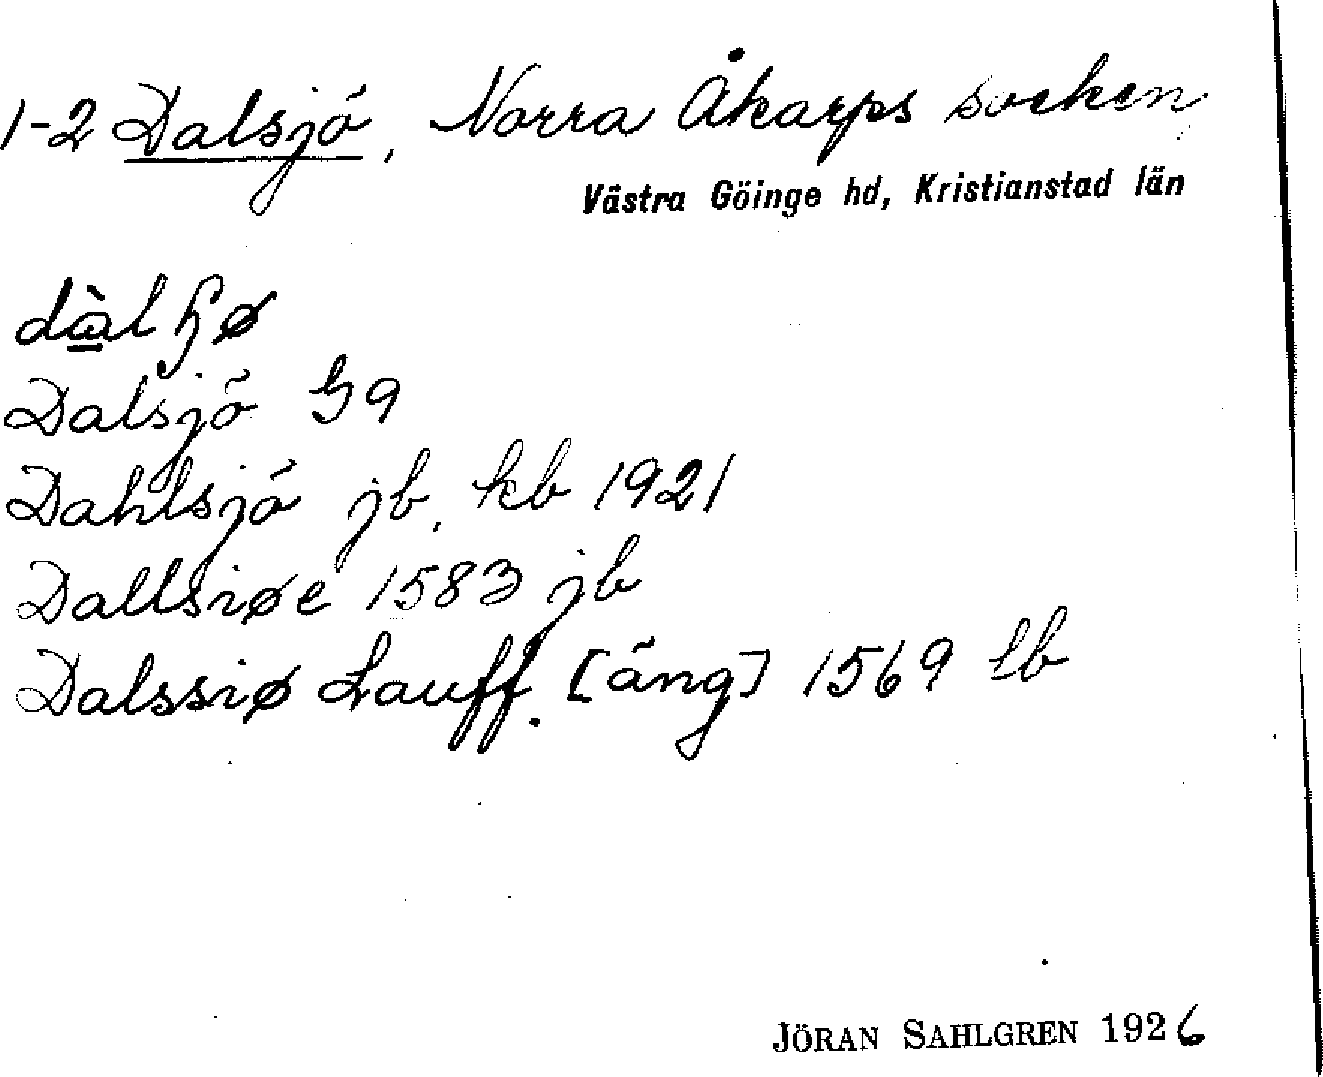 1-2 Dalsjö, Norra Åkarps socken
Västra Göinge hd, Kristianstad län
dàlɧø
Dalsjö G9
Dahlsjö jb, kb 1921
Dallsiøe 1583 jb
Dalssiø Lauff. [äng] 1569 lb
JÖRAN SAHLGREN 1926